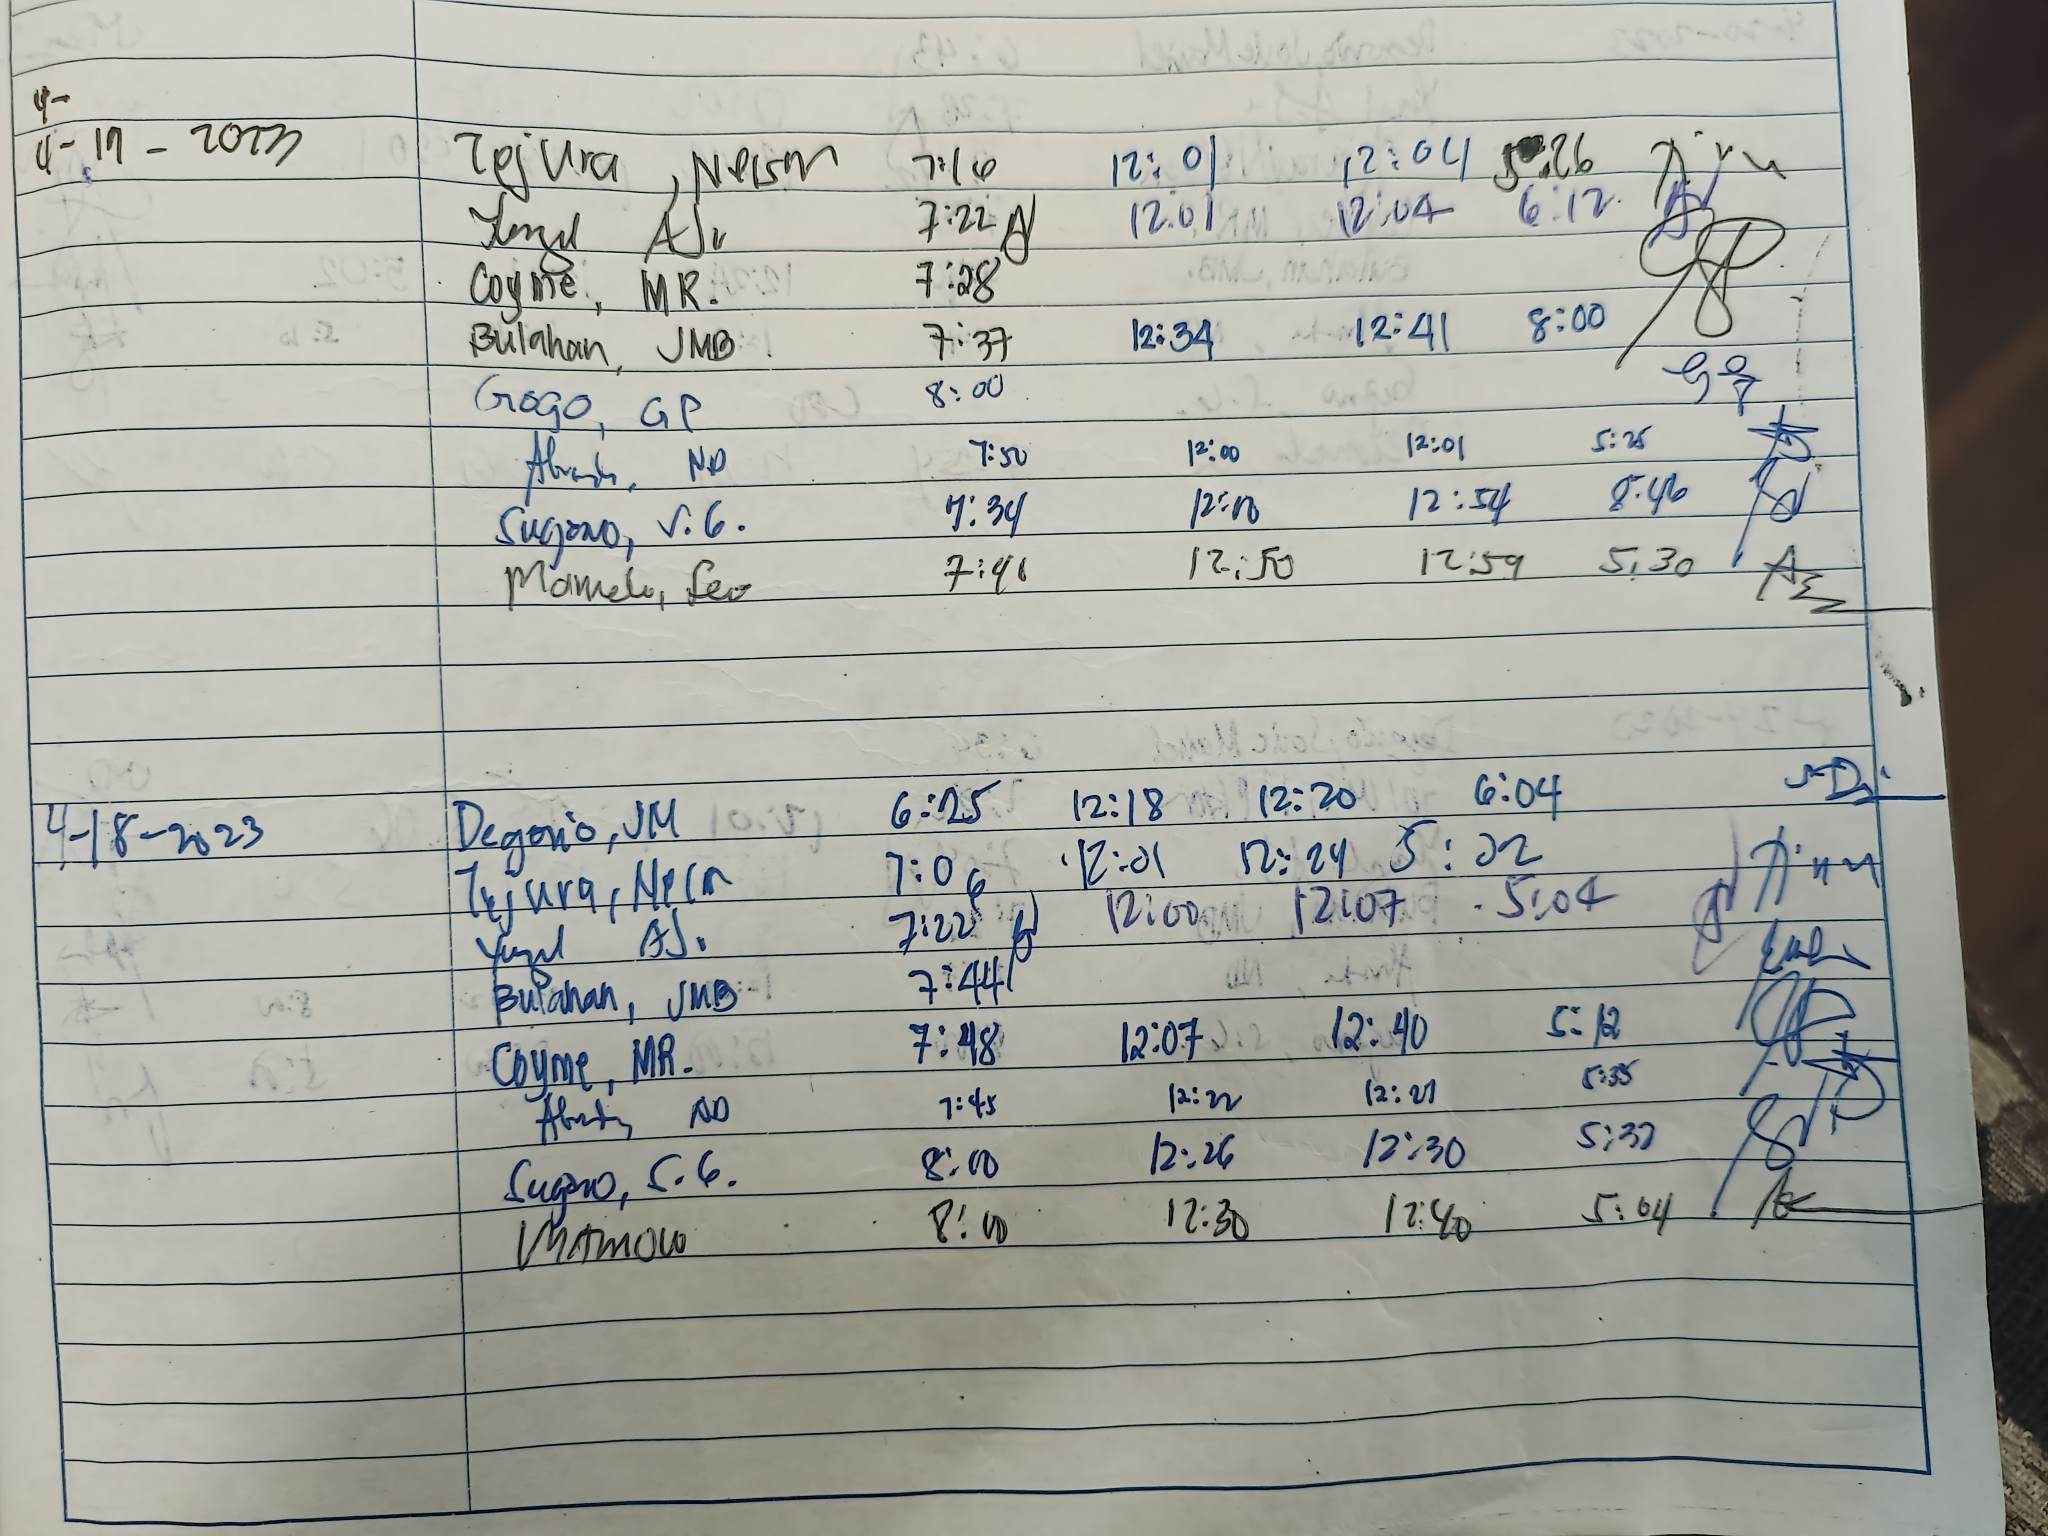 4-
4-17-2023 Tejura, Nelson 7:16 12:01 12:04 5:26
AJ. 7:22 12:01 12:04 6:12
Coyme, MR. 7:28
Bulahan, JMB 7:37 12:34 12:41 8:00
Gogo, GP 8:00
ND 7:50 12:00 12:01 5:25
Sugano, S.G. 7:34 12:10 12:54 8:46
Leo 7:41 12:50 12:59 5:30
4-18-2023 Degorio, JM 6:25 12:18 12:20 6:04
Tejura, Nelson 7:06 12:01 12:24 5:02
AJ. 7:22 12:00 12:07 5:04
Bulahan, JMB 7:44
Coyme, MR. 7:48 12:07 12:40 5:12
ND 7:45 12:22 12:27 5:35
Sugano, S.G. 8:00 12:26 12:30 5:32
8:00 12:30 12:40 5:04